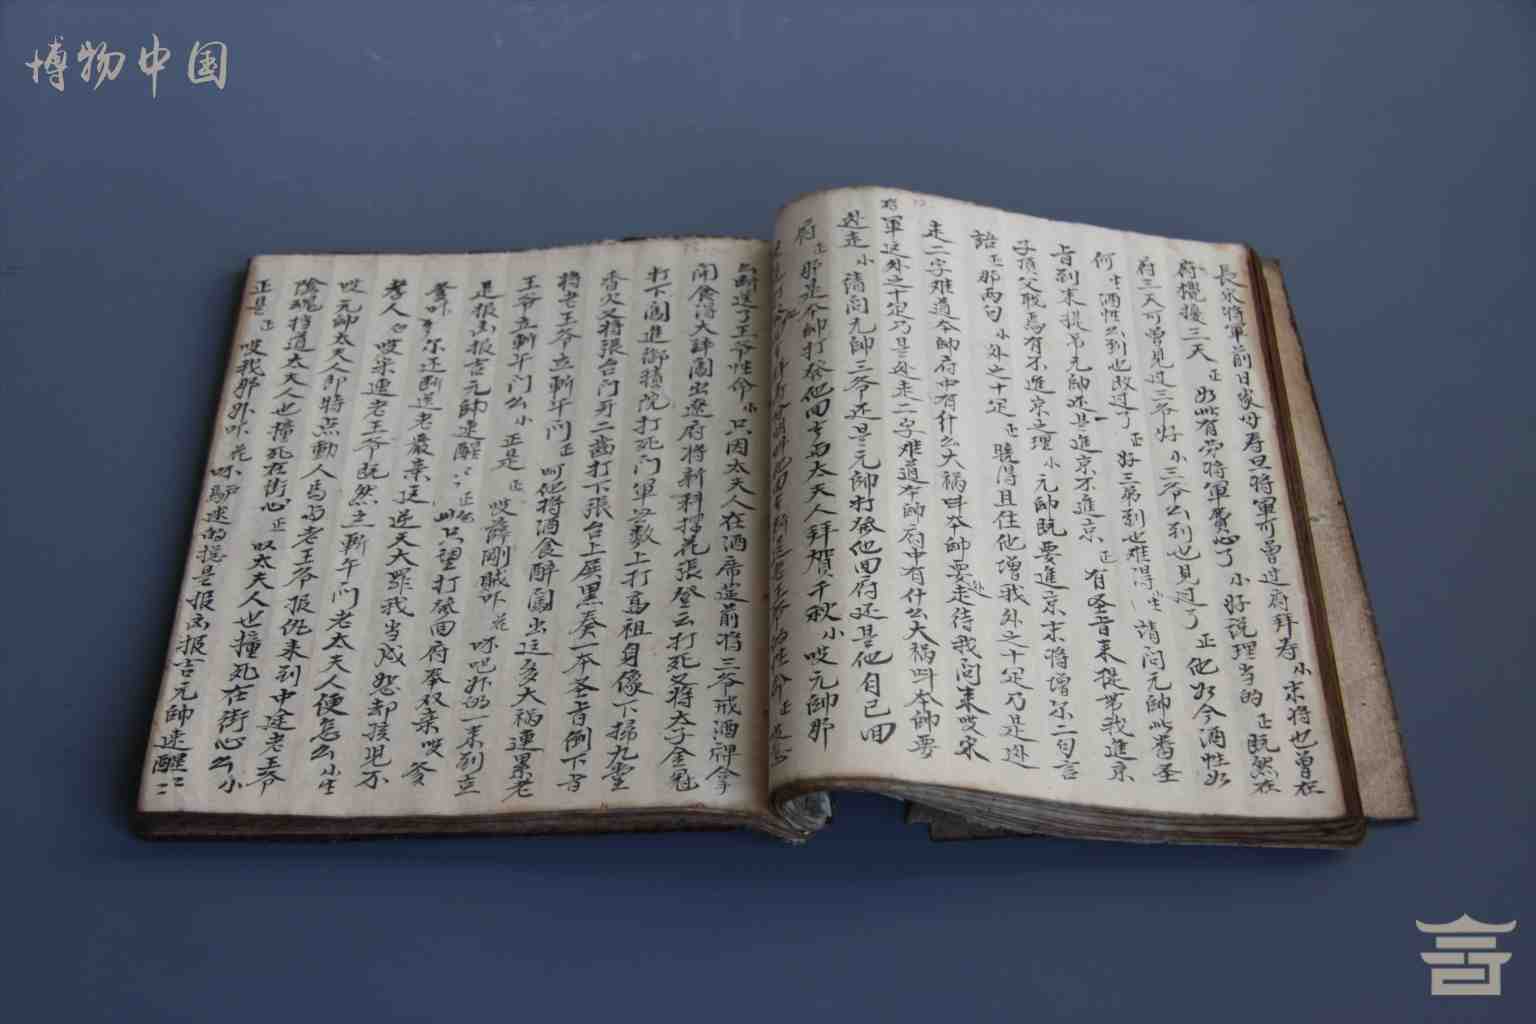 博物中国
長泉將軍前日家母寿旦將軍可曾过府拜寿 小 末將也曾在
府攪擾三天 正 如此有劳將軍費心了 小 好說理当的 正 既然在
府三天可曾見过三爷好 小 三爷么到也見过了 正 他如今酒性如
何 小 酒性么到也改过了 正 好三弟到也难得 生 請问元帥此番圣
旨到来提弟元帥还是進京不進京 正 有圣旨来提弟我進京
子頂父职焉有不進京之理 小 元帥既要進京末將增尔二句言
語 正 那两句 小 外之十定 正 曉得且住他增我外之十定乃是赴
走二字难道本帥府中有什么大禍吽本帥要走待我问来哎宋
將軍这外之十定乃是赴走二字难道本帥府中有什么大禍吽本帥要
赴走 小 請问元帥三爷还是元帥打發他回府还是他自已回
府 正 那是本帥打發他回去与太夫人拜賀千秋 小 哎元帥那
断送了王爷性命 小 只因太夫人在酒席莚前將三爷戒酒牌拿
開食得大醉闖出遼府將新科探花張登云打死又將太子金冠
打下闖進御積院打死门軍無数上打高祖身像下掃九堂
香火又將張台门牙二齒打下張台上殿黑奏一本圣旨倒下言
將老王爷立斬午门 正 呵他將酒食醉闖出这多大禍連累老
王爷立斬午门么 小 正是 正 哎薛剛賊吥 花 呸吧奸的一来到立
是报凶报吉元帥速醒 正 只望打發回府奉奴亲哎爹
爹吥尔还断送老嚴亲这逆天大罪我当成怨却孩児不
孝人 哎宋連老王爷既然立斬午门老太夫人便怎么 小生
哎元帥太夫人即特点動人馬与老王爷报仇来到中途老王爷
陰魂擋道太夫人也撞死在街心 正 叹太夫人也撞死在街心么 小
正是 正 哎我那外吥 花 呸馿速的挽是报凶报吉元帥速醒